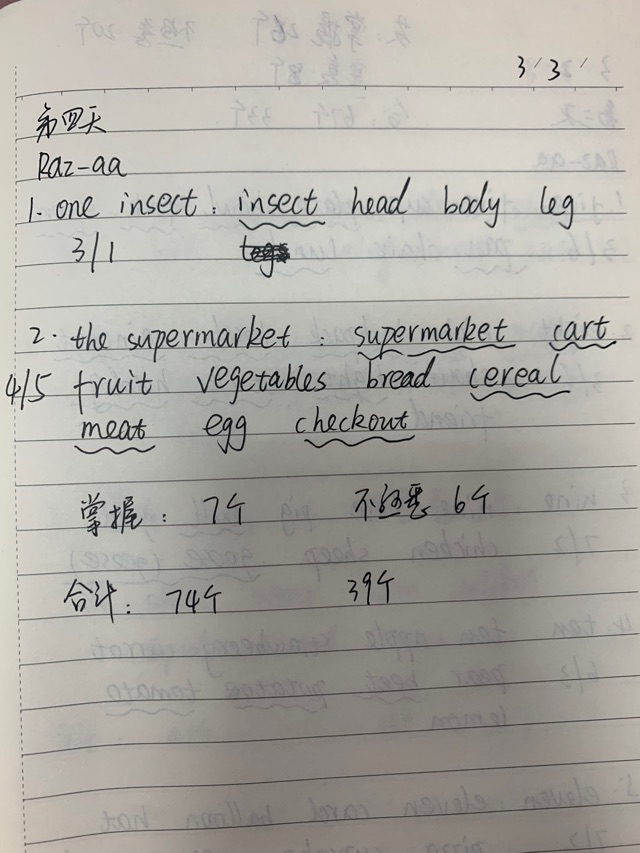 3/3/
第四天
Raz-aa
1. one insect: insect head body leg
3/1
2. the supermarket: supermarket cart
4/5 fruit vegetables bread cereal
meat egg checkout
掌握: 7个 不熟悉 6个
合计: 74个 39个